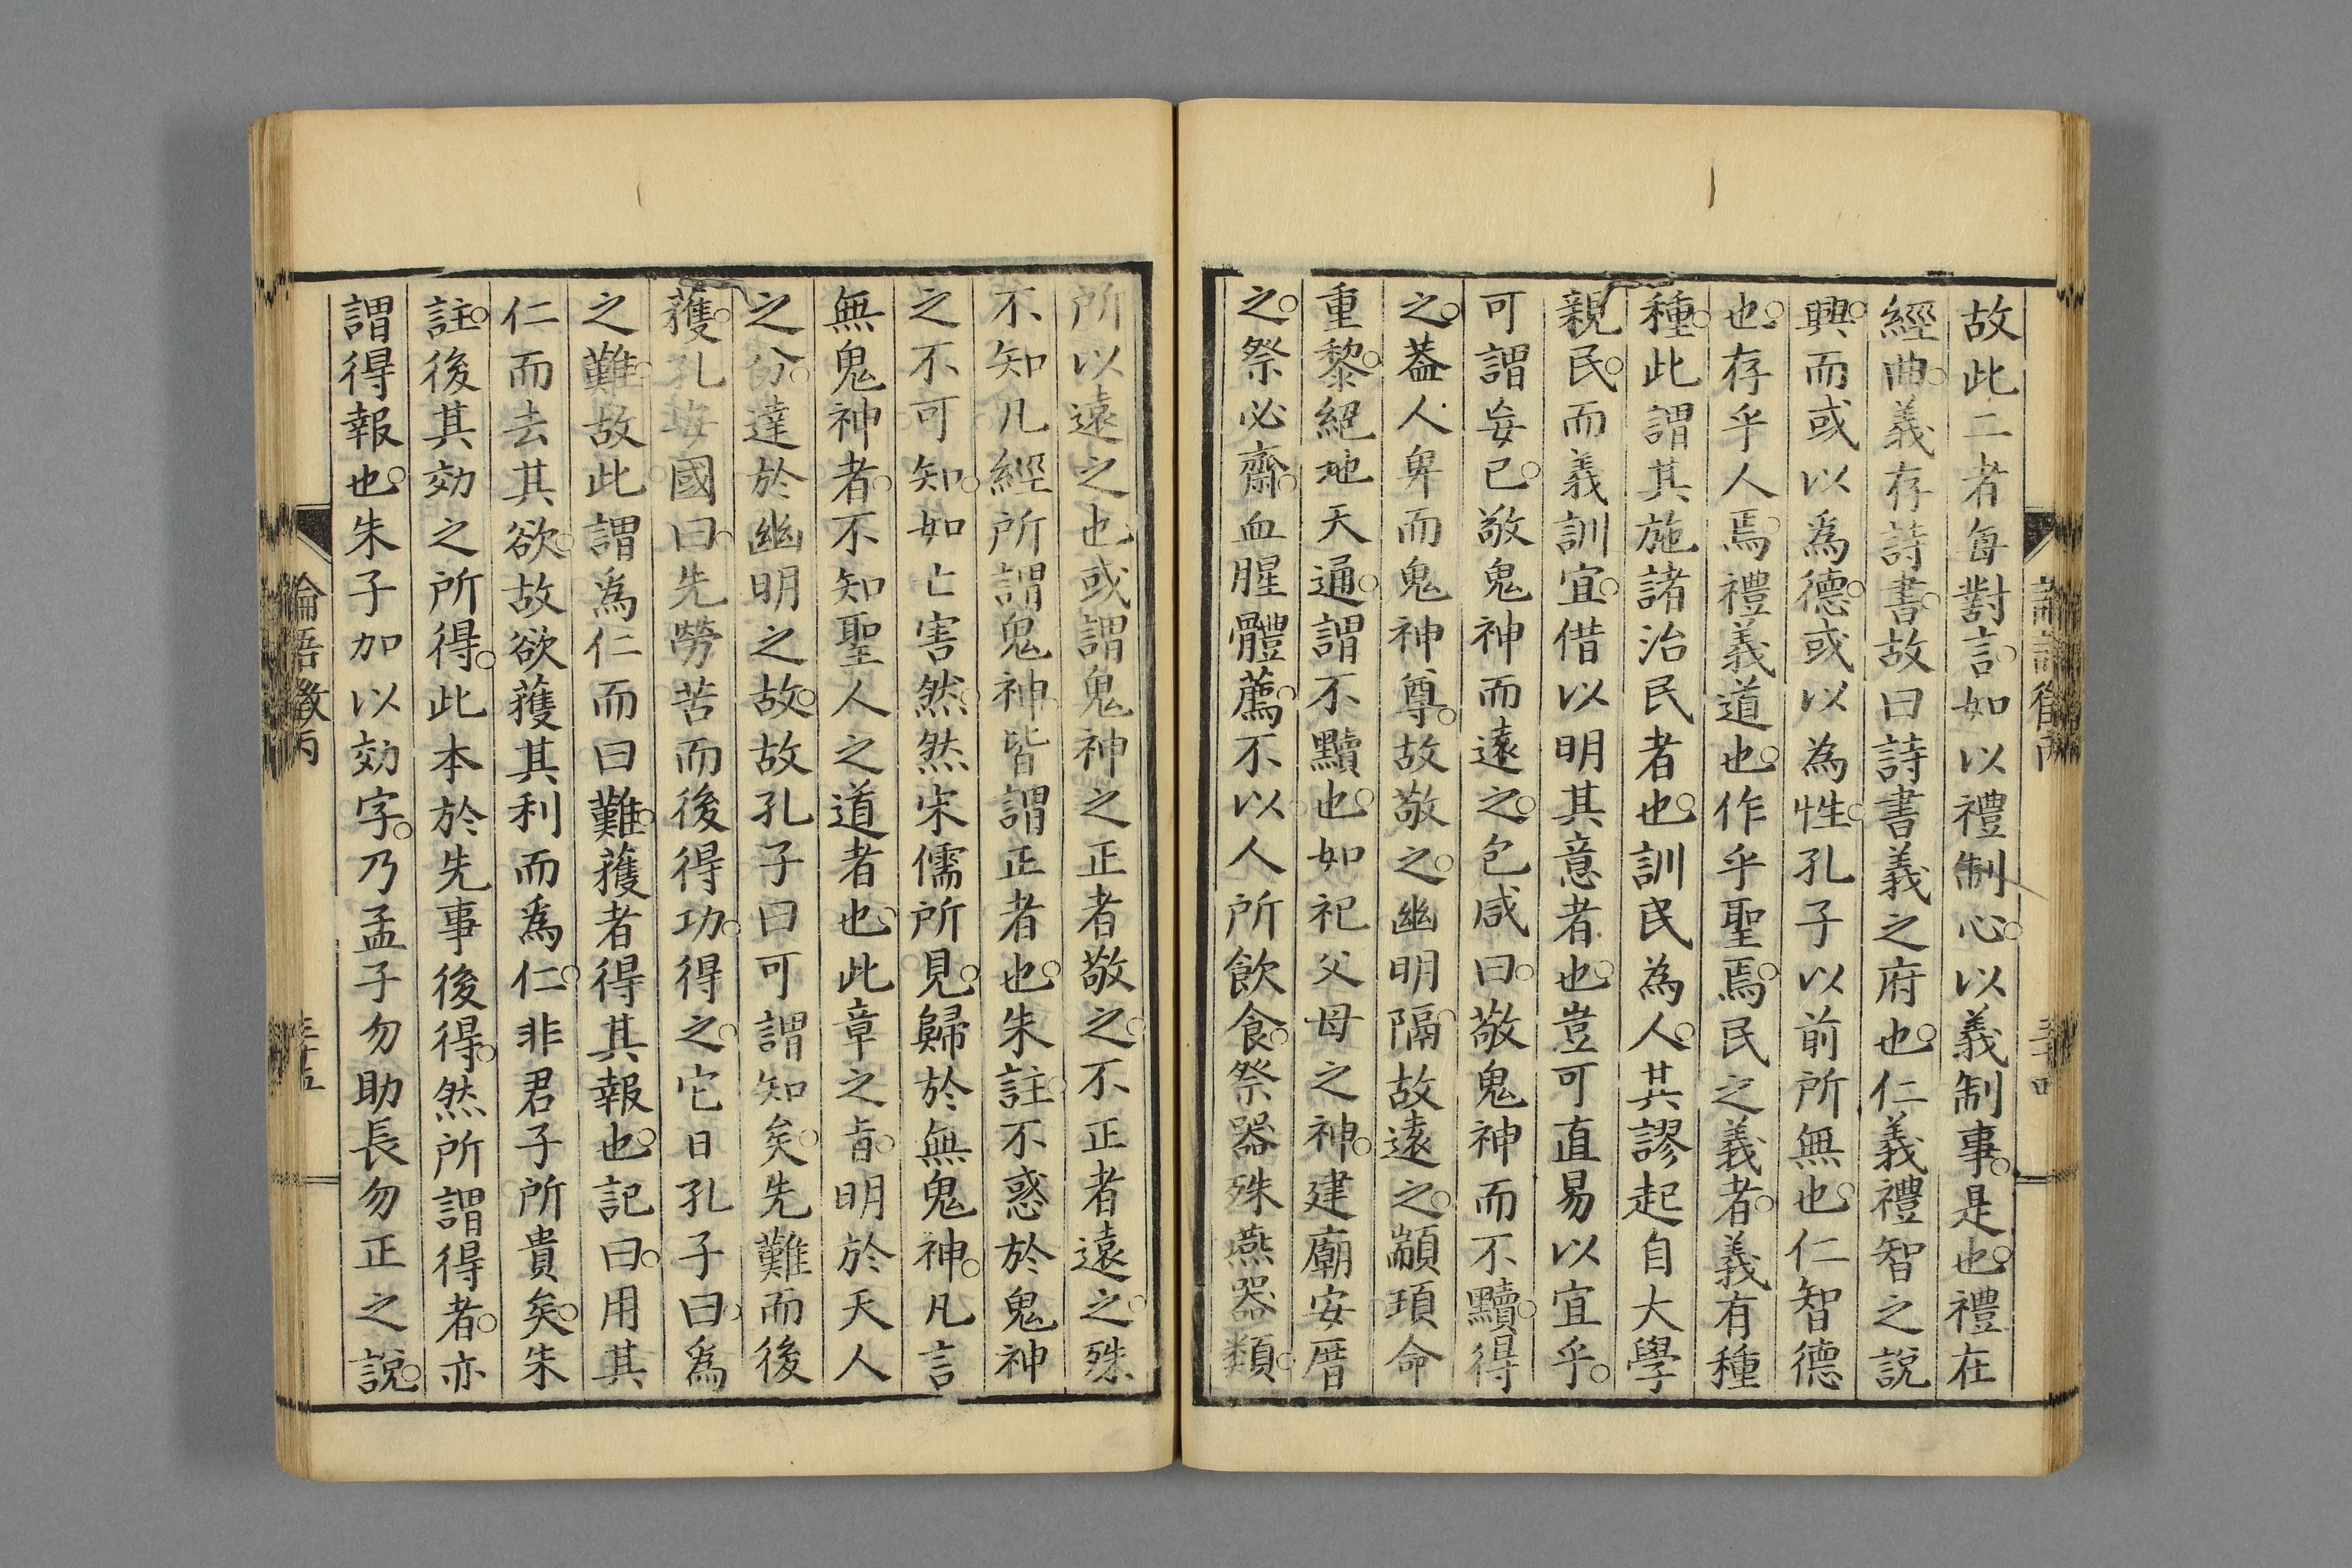 故此二者每對言。如以禮制心。以義制事。是也。禮在
經曲。義存詩書。故曰詩書義之府也。仁義禮智之說
興。而或以爲德。或以為性。孔子以前所無也。仁智德
也。存乎人焉。禮義道也。作乎聖焉。民之義者。義有種
種。此謂其施諸治民者也。訓民為人。其謬起自大學
親民。而義訓宜。借以明其意者也。豈可直易以宜乎。
可謂妄已。敬鬼神而遠之。包咸曰。敬鬼神而不黷。得
之。葢人卑而鬼神尊。故敬之。幽明隔。故遠之。顓頊命
重黎。絕地天通。謂不黷也。如祀父母之神。建廟安厝
之。祭必齋。血腥體薦。不以人所飲食。祭器殊燕器類。
所以遠之也。或謂鬼神之正者敬之。不正者遠之。殊
不知凡經所謂鬼神。皆謂正者也。朱註。不惑於鬼神
之不可知。如亡害然。然宋儒所見。歸於無鬼神。凡言
無鬼神者。不知聖人之道者也。此章之旨。明於天人
之分。達於幽明之故。故孔子曰可謂知矣。先難而後
獲。孔安國曰。先勞苦而後得功。得之。它日孔子曰。爲
之難。故此謂爲仁而曰難。獲者得其報也。記曰。用其
仁而去其欲。故欲獲其利而爲仁。非君子所貴矣。朱
註。後其効之所得。此本於先事後得。然所謂得者。亦
謂得報也。朱子加以効字。乃孟子勿助長勿正之說。
論語徵丙
三十五